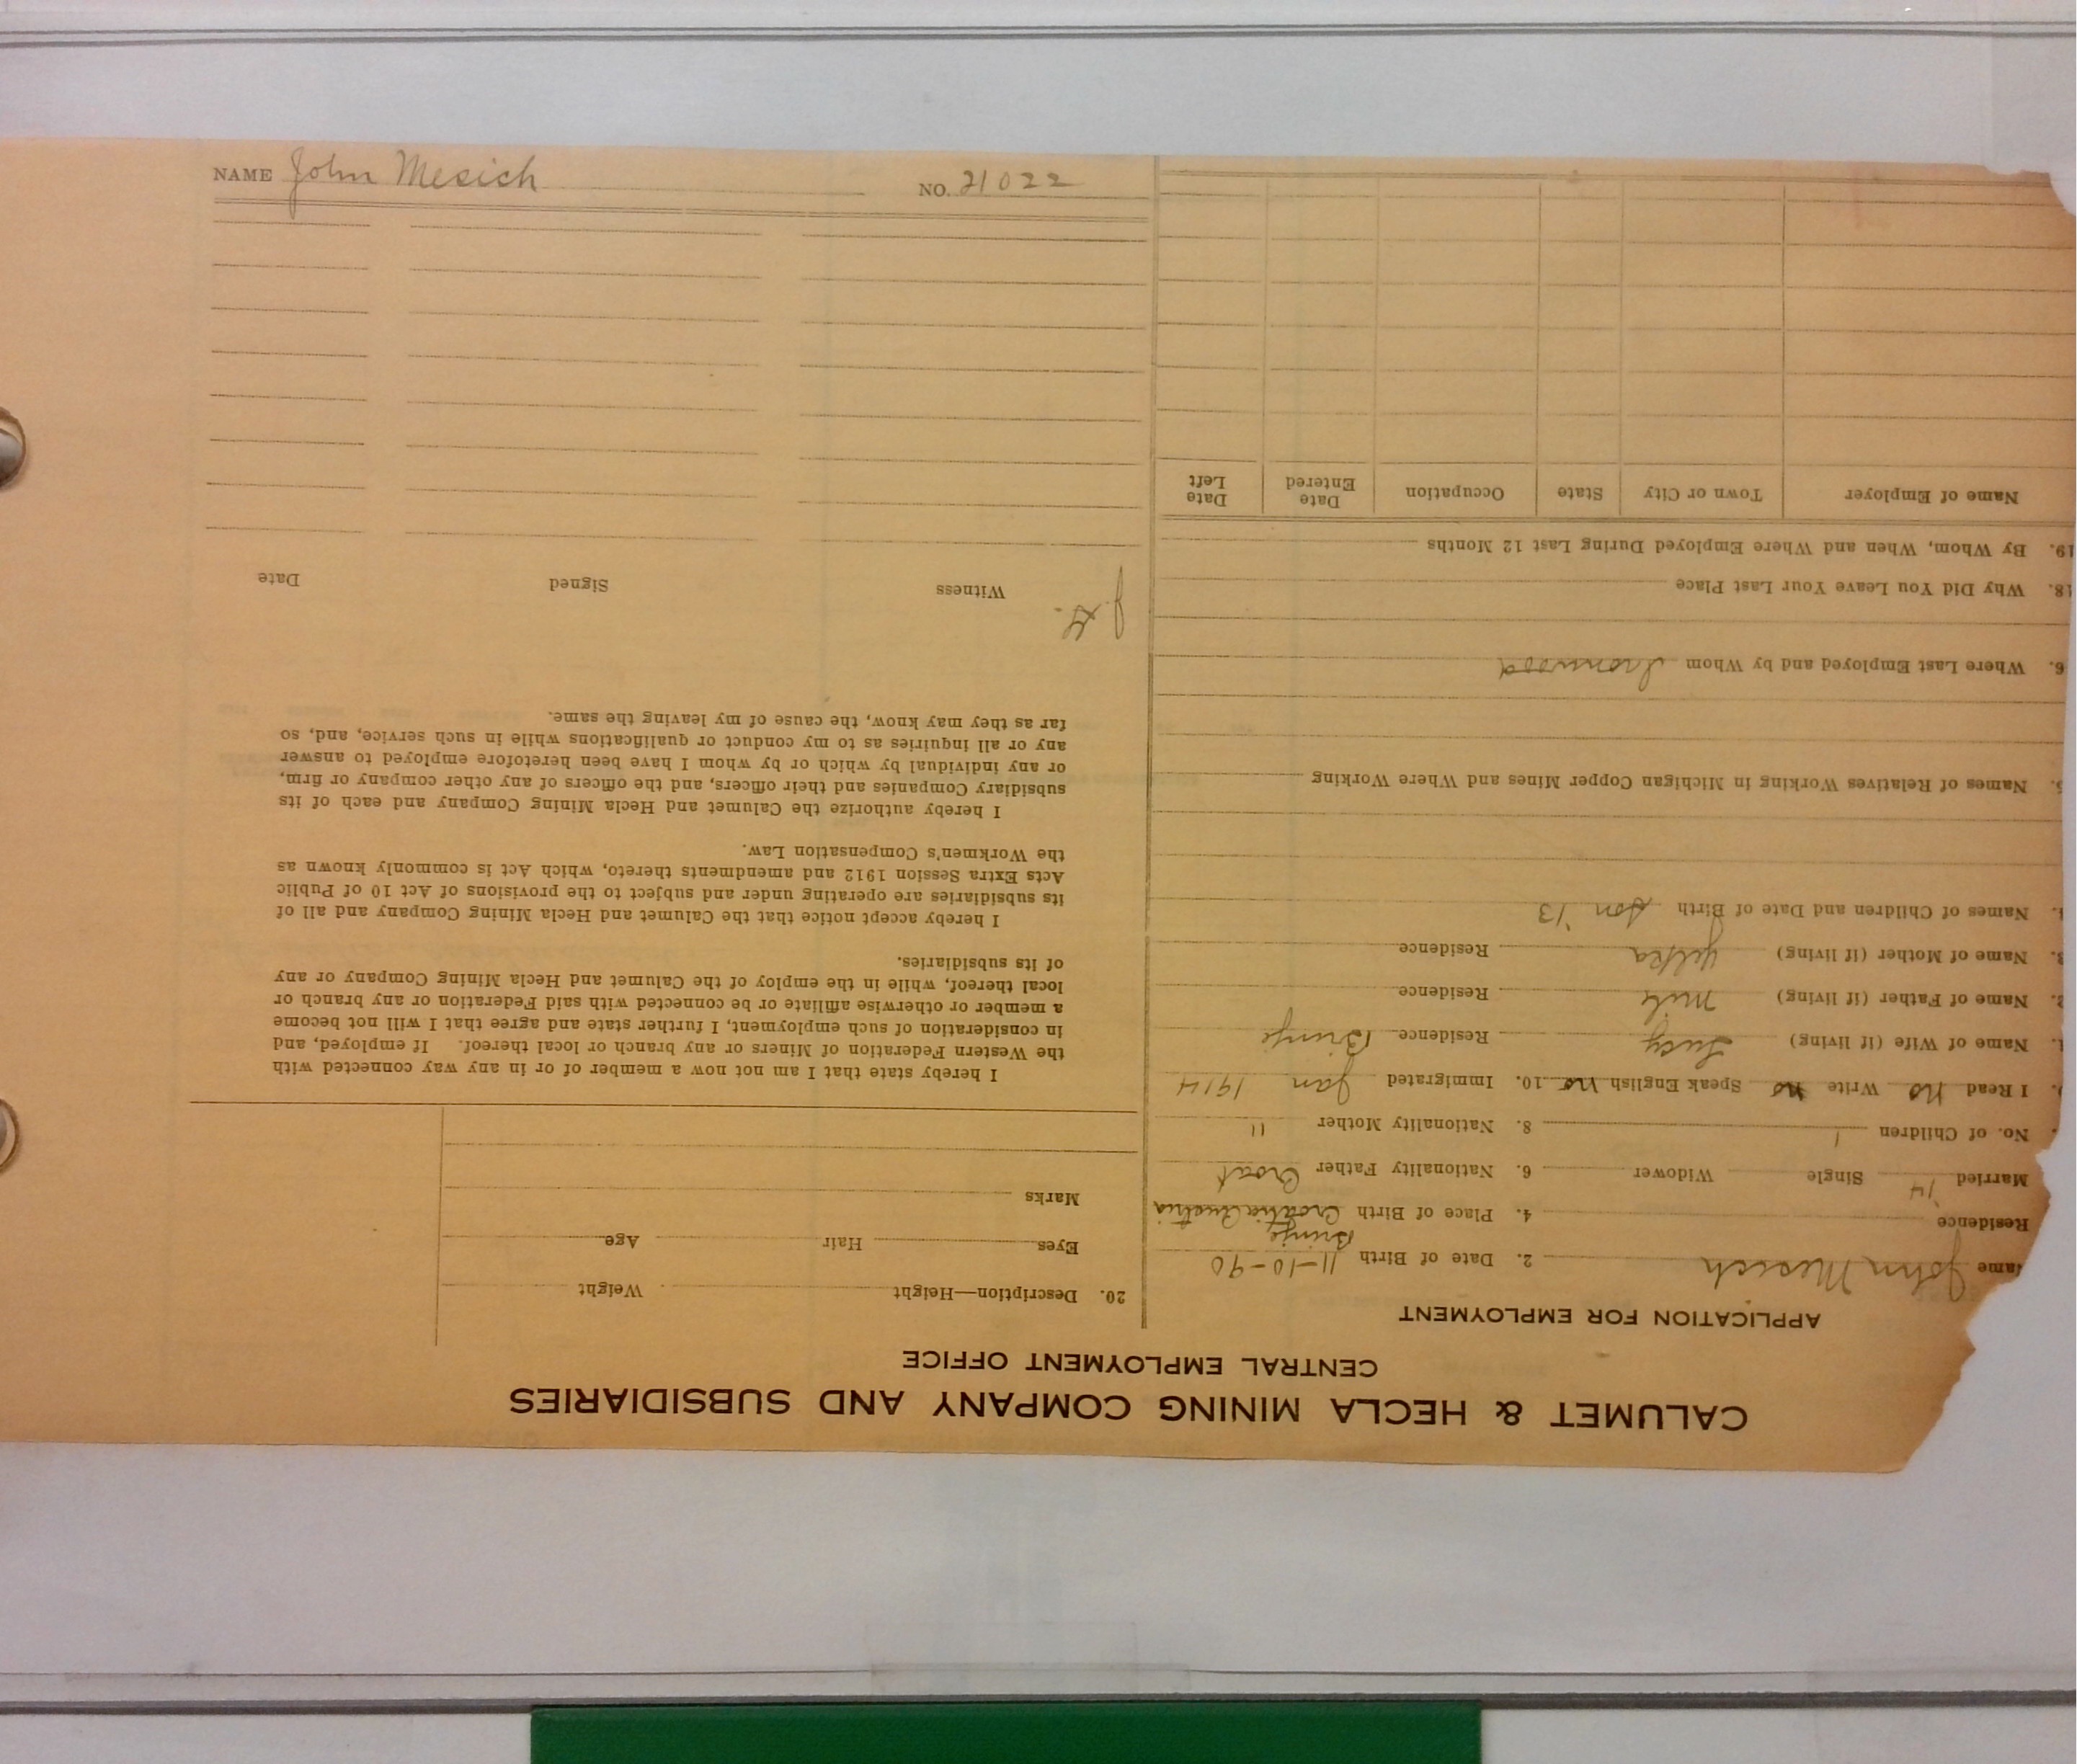 NAME John Mesich NO. 21022
CALUMET & HECLA MINING COMPANY AND SUBSIDIARIES
CENTRAL EMPLOYMENT OFFICE
APPLICATION FOR EMPLOYMENT
ame John Mesich 2. Date of Birth 11-10-90
Brinje
Residence 4. Place of Birth Croatia Austria
Married '14 Single Widower 6. Nationality Father Croat
No. of Children 1 8. Nationality Mother "
I Read no Write no Speak English no 10. Immigrated Jan 1914
1. Name of Wife (if living) Lucy Residence Brinje
2. Name of Father (if living) Mile Residence
3. Name of Mother (if living) Residence
4. Names of Children and Date of Birth Son '13
5. Names of Relatives Working in Michigan Copper Mines and Where Working
6. Where Last Employed and by Whom Ironwood
18. Why Did You Leave Your Last Place
19. By Whom, When and Where Employed During Last 12 Months
Name of Employer Town or City State Occupation Date Entered Date Left
20. Description—Height Weight
Eyes Hair Age
Marks
I hereby state that I am not now a member of or in any way connected with
the Western Federation of Miners or any branch or local thereof. If employed, and
in consideration of such employment, I further state and agree that I will not become
a member or otherwise affiliate or be connected with said Federation or any branch or
local thereof, while in the employ of the Calumet and Hecla Mining Company or any
of its subsidiaries.
I hereby accept notice that the Calumet and Hecla Mining Company and all of
its subsidiaries are operating under and subject to the provisions of Act 10 of Public
Acts Extra Session 1912 and amendments thereto, which Act is commonly known as
the Workmen's Compensation Law.
I hereby authorize the Calumet and Hecla Mining Company and each of its
subsidiary Companies and their officers, and the officers of any other company or firm,
or any individual by which or by whom I have been heretofore employed to answer
any or all inquiries as to my conduct or qualifications while in such service, and, so
far as they may know, the cause of my leaving the same.
Witness Signed Date